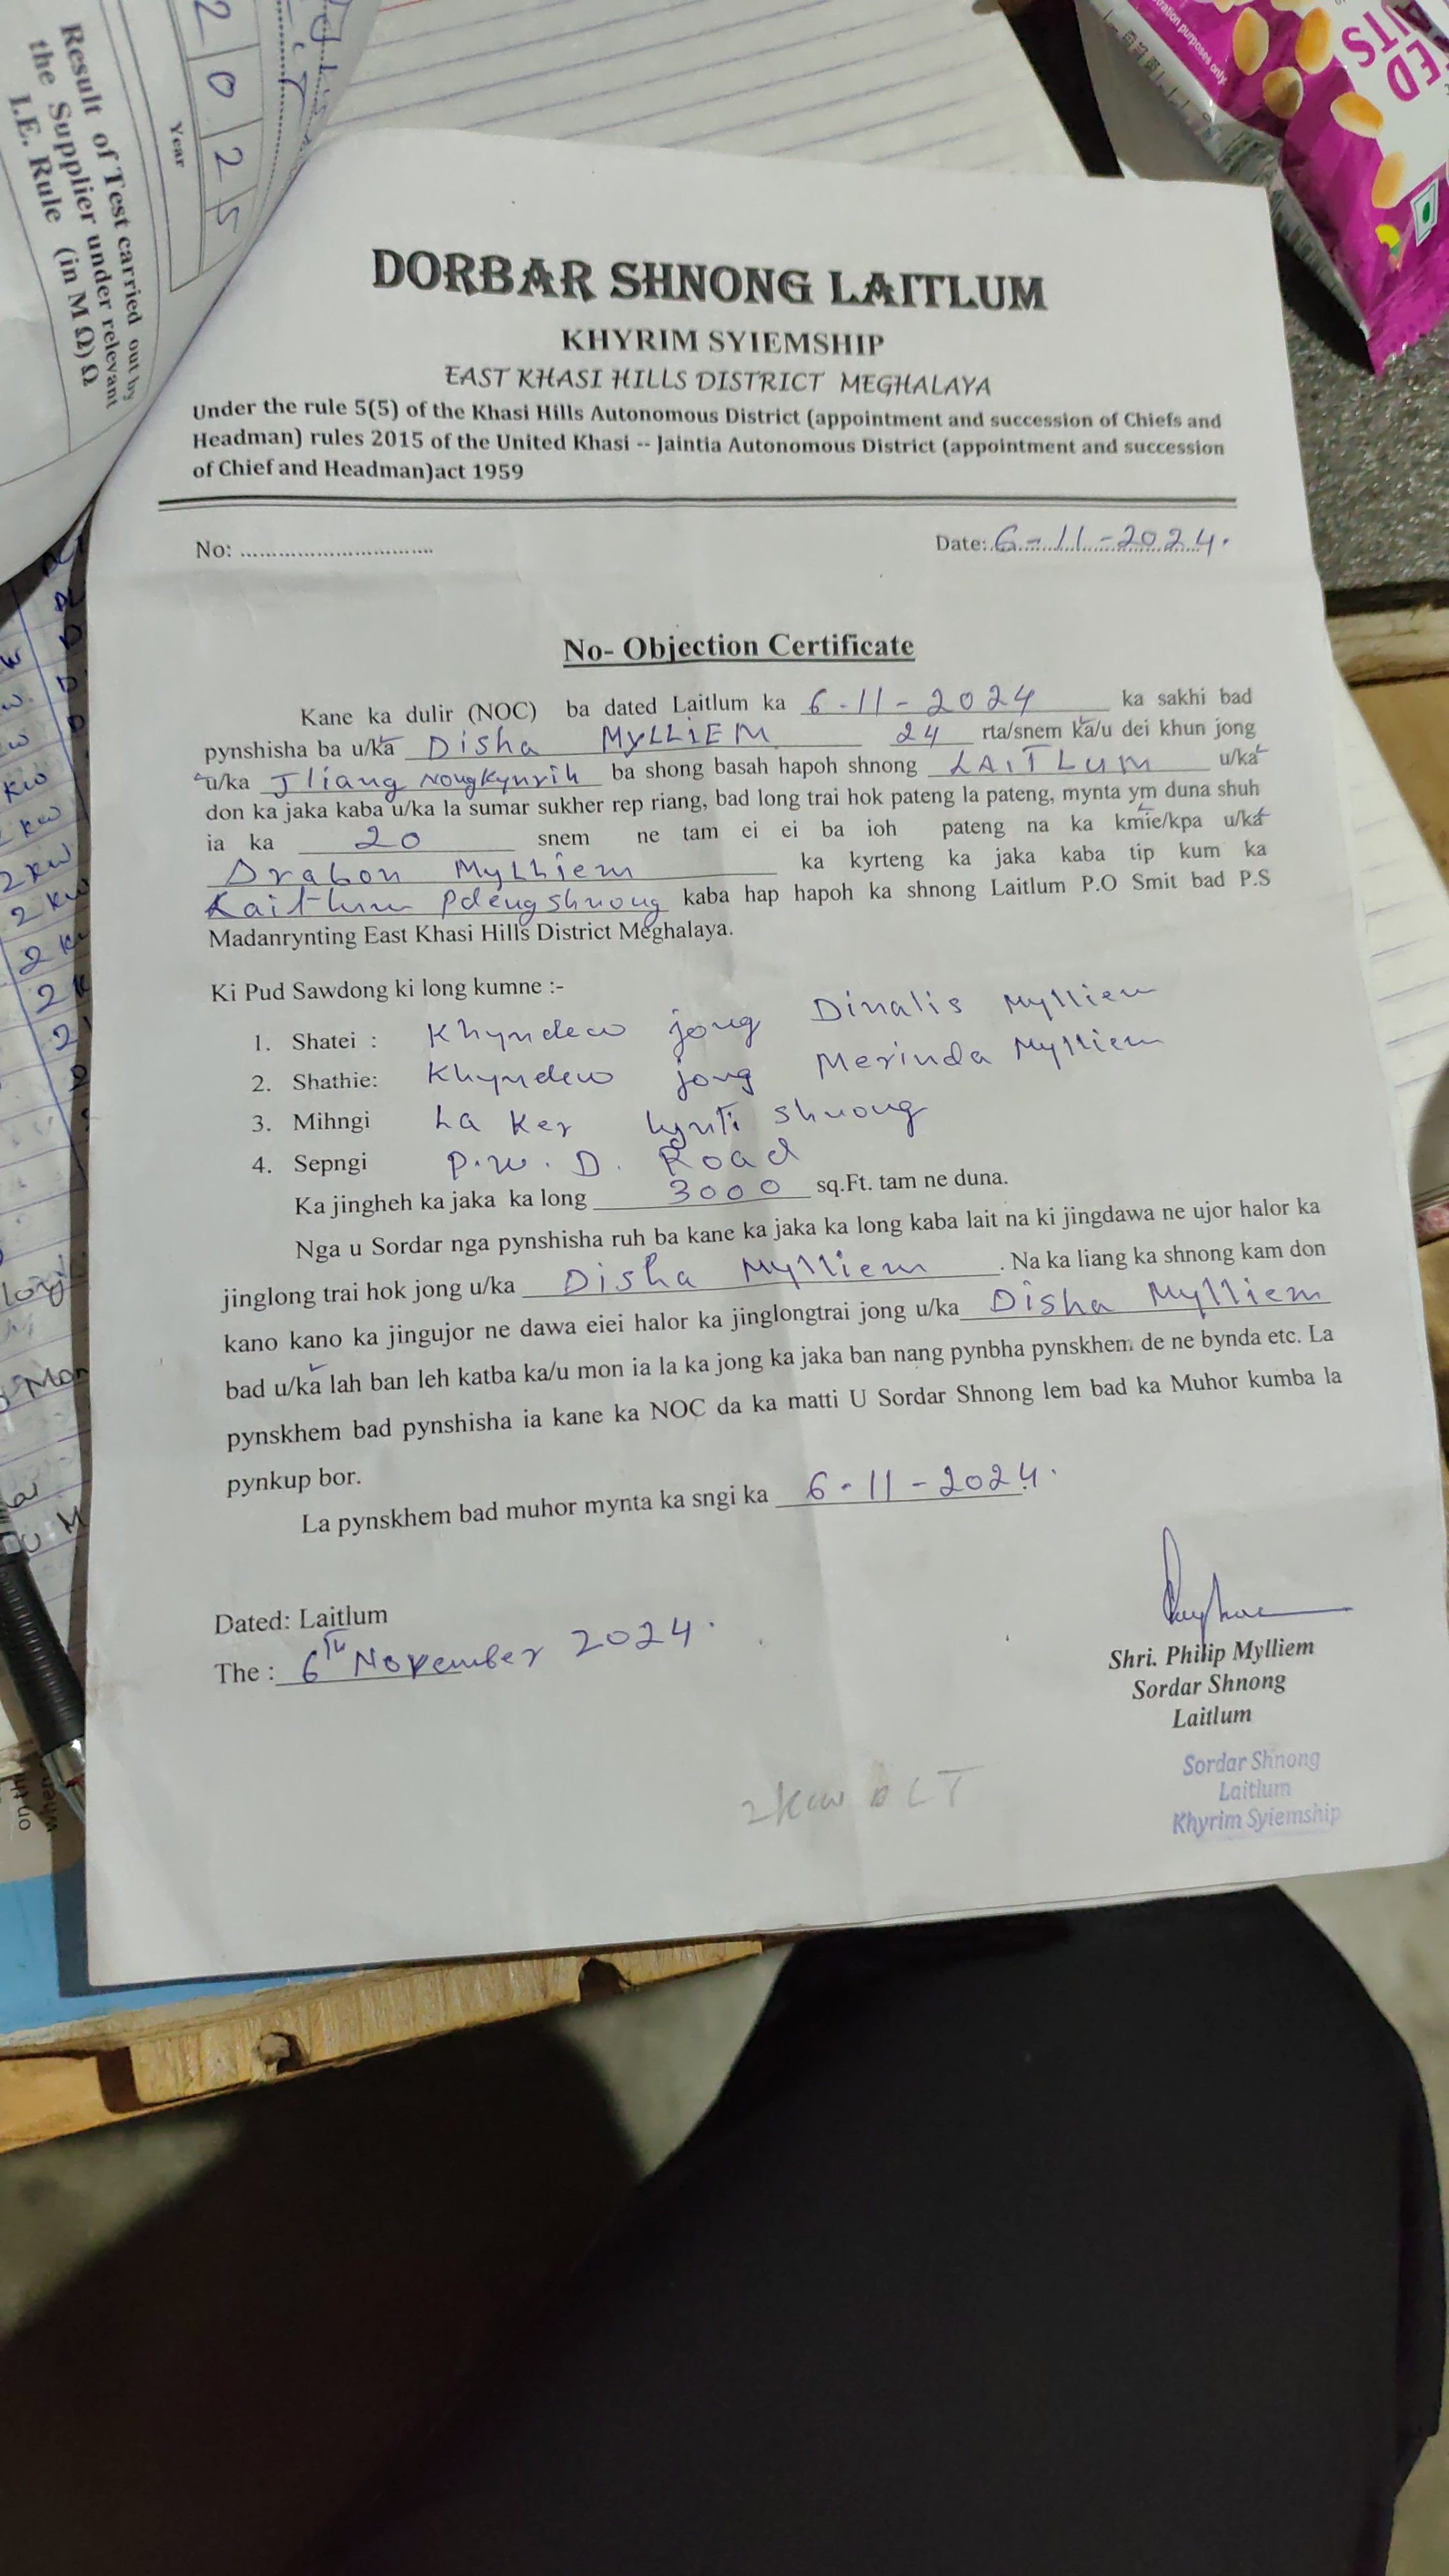 2 0 2 5
Year
Result of Test carried out by
the Supplier under relevant
I.E. Rule (in M Ω) Ω
ration purposes only.
DORBAR SHNONG LAITLUM
KHYRIM SYIEMSHIP
EAST KHASI HILLS DISTRICT MEGHALAYA
Under the rule 5(5) of the Khasi Hills Autonomous District (appointment and succession of Chiefs and
Headman) rules 2015 of the United Khasi -- Jaintia Autonomous District (appointment and succession
of Chief and Headman)act 1959
No: ............................... Date: 6-11-2024.
No- Objection Certificate
Kane ka dulir (NOC) ba dated Laitlum ka 6-11-2024 ka sakhi bad
pynshisha ba u/ka Disha MYLLIEM 24 rta/snem ka/u dei khun jong
u/ka Jliang Nongkynrih ba shong basah hapoh shnong LAITLUM u/ka
don ka jaka kaba u/ka la sumar sukher rep riang, bad long trai hok pateng la pateng, mynta ym duna shuh
ia ka 20 snem ne tam ei ei ba ioh pateng na ka kmie/kpa u/ka
Drabon Mylliem ka kyrteng ka jaka kaba tip kum ka
Laitlum Pdengshnong kaba hap hapoh ka shnong Laitlum P.O Smit bad P.S
Madanrynting East Khasi Hills District Meghalaya.
Ki Pud Sawdong ki long kumne :-
1. Shatei : Khyndew jong Dinalis Mylliem
2. Shathie: Khyndew jong Merinda Mylliem
3. Mihngi La Ker kynti shnong
4. Sepngi P.W.D. Road
Ka jingheh ka jaka ka long 3000 sq.Ft. tam ne duna.
Nga u Sordar nga pynshisha ruh ba kane ka jaka ka long kaba lait na ki jingdawa ne ujor halor ka
jinglong trai hok jong u/ka Disha Mylliem . Na ka liang ka shnong kam don
kano kano ka jingujor ne dawa eiei halor ka jinglongtrai jong u/ka Disha Mylliem
bad u/ka lah ban leh katba ka/u mon ia la ka jong ka jaka ban nang pynbha pynskhem de ne bynda etc. La
pynskhem bad pynshisha ia kane ka NOC da ka matti U Sordar Shnong lem bad ka Muhor kumba la
pynkup bor.
La pynskhem bad muhor mynta ka sngi ka 6-11-2024.
Dated: Laitlum
The : 6th November 2024.
Shri. Philip Mylliem
Sordar Shnong
Laitlum
Sordar Shnong
Laitlum
Khyrim Syiemship
2kW